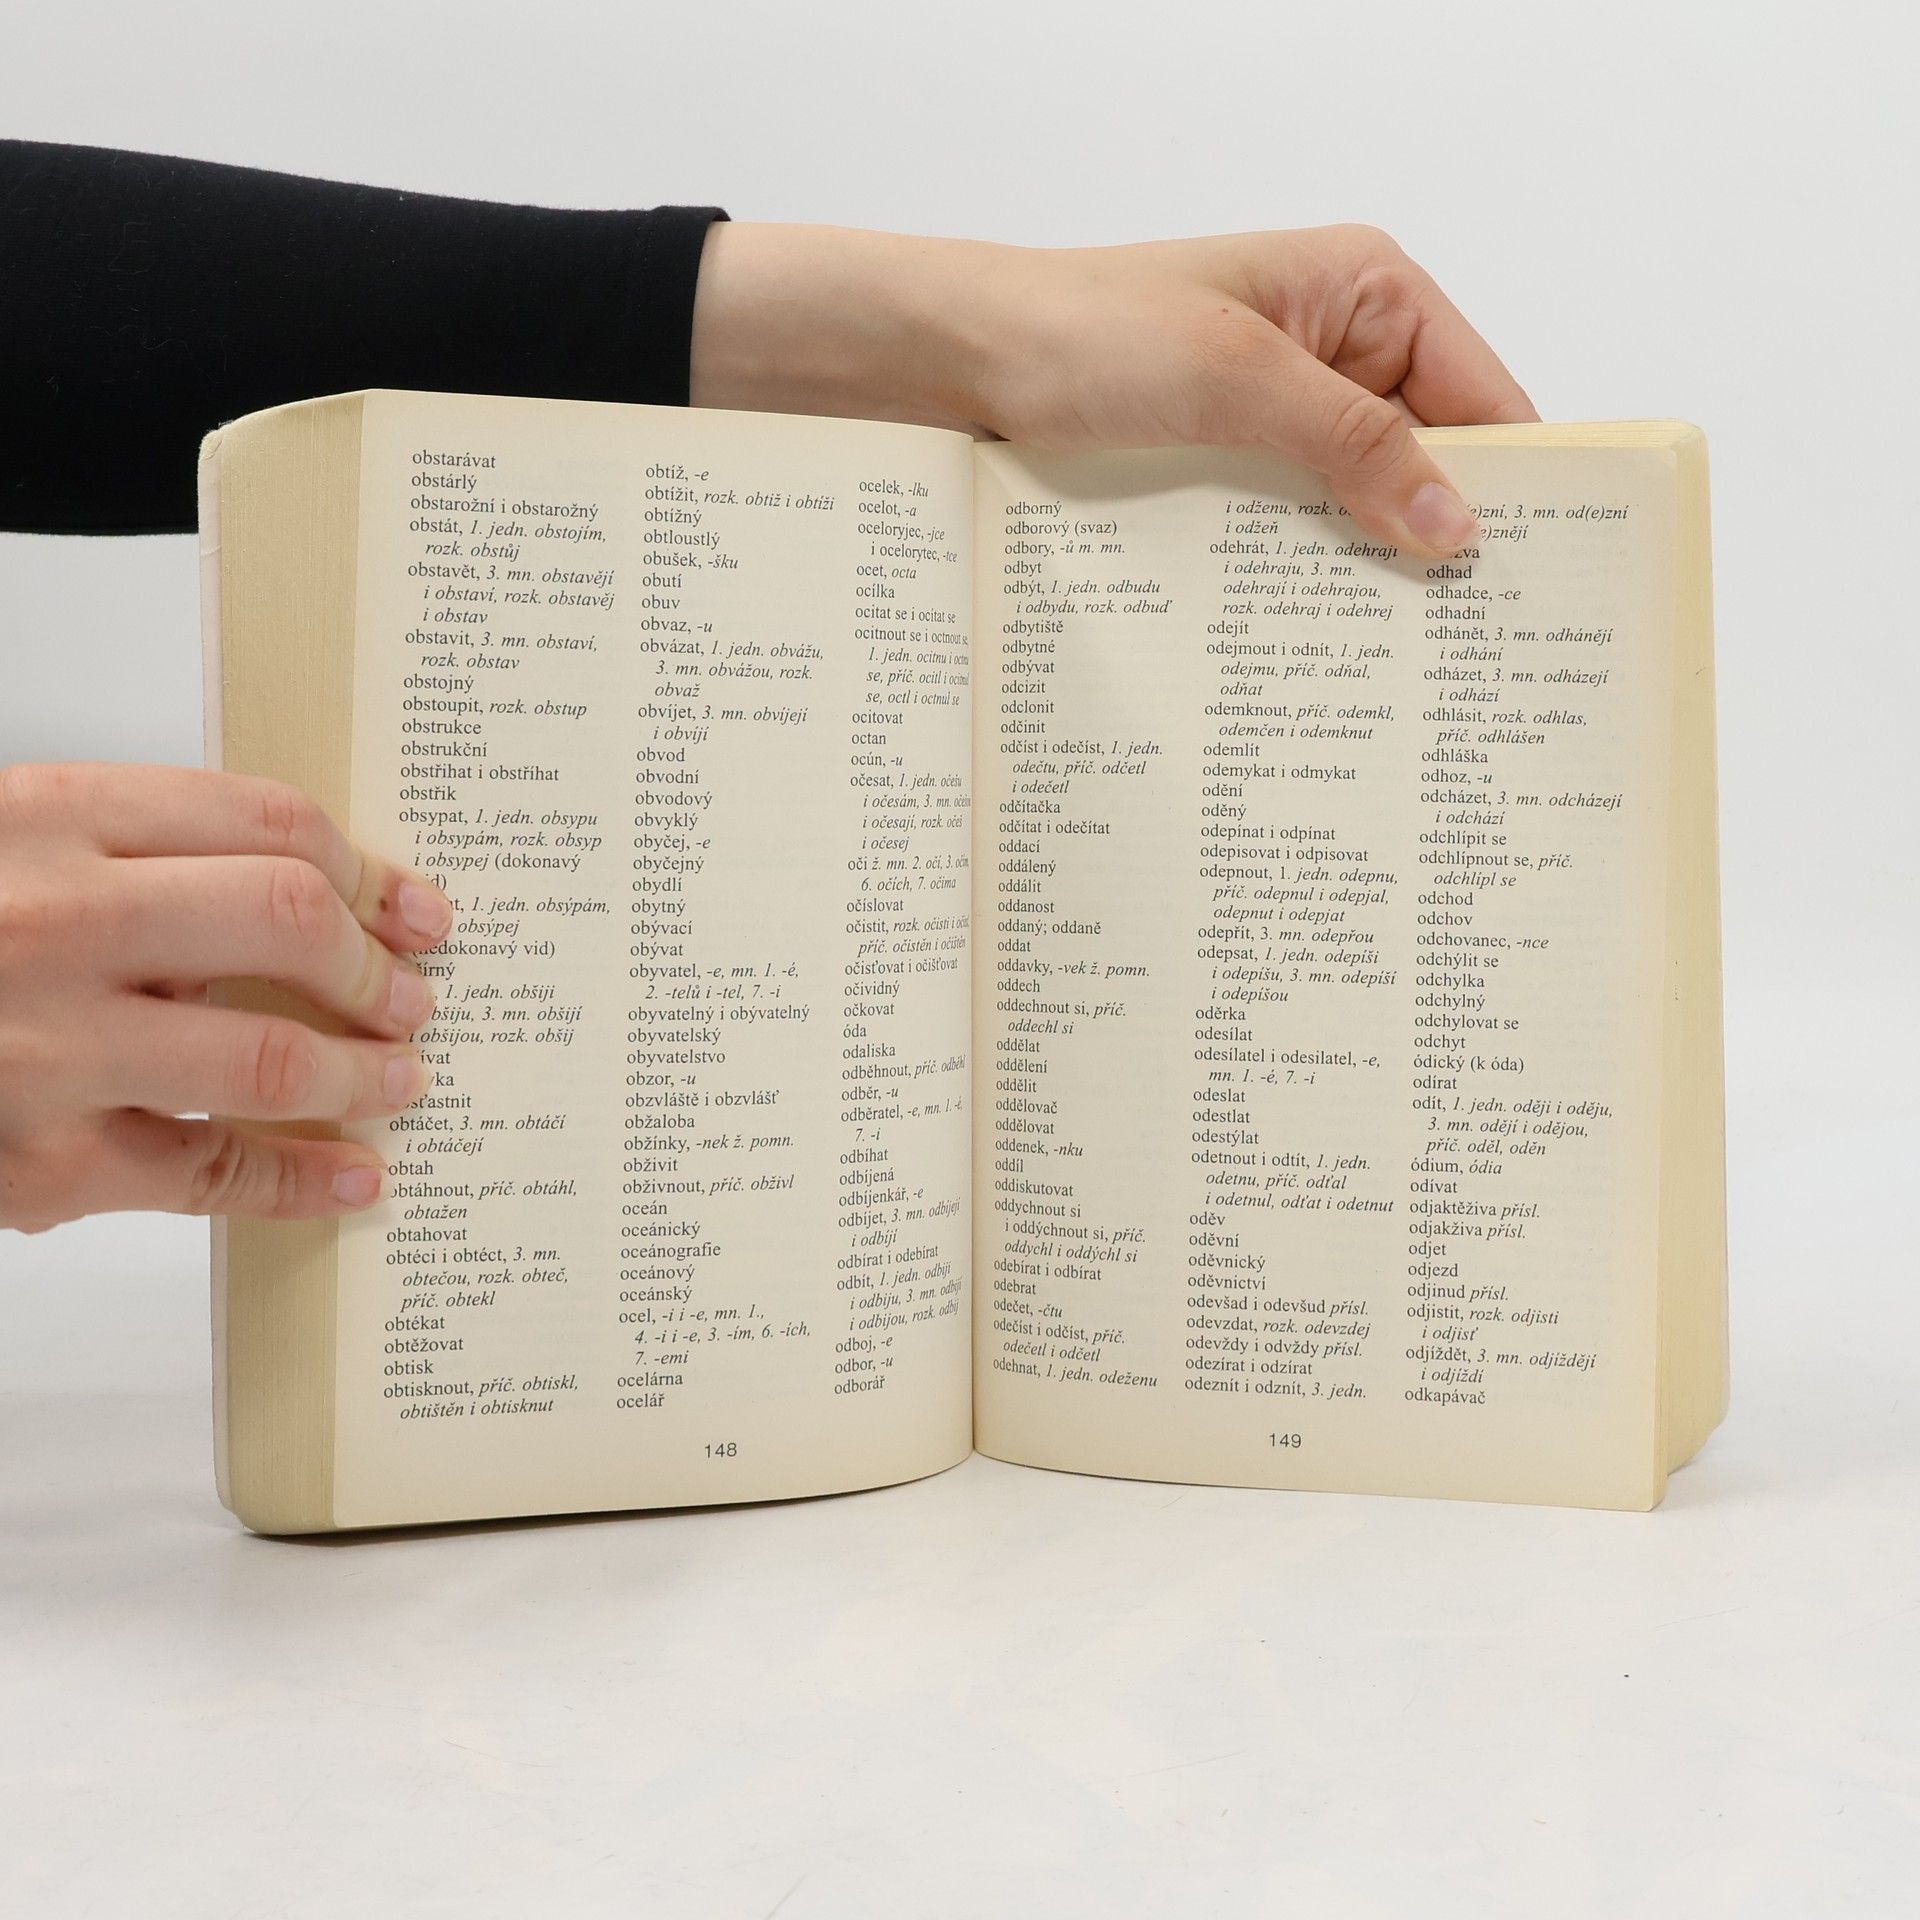 obstarávat
obstárlý
obstarožní i obstarožný
obstát, 1. jedn. obstojím,
rozk. obstůj
obstavět, 3. mn. obstavějí
i obstaví, rozk. obstavěj
i obstav
obstavit, 3. mn. obstaví,
rozk. obstav
obstojný
obstoupit, rozk. obstup
obstrukce
obstrukční
obstřihat i obstříhat
obstřik
obsypat, 1. jedn. obsypu
i obsypám, rozk. obsyp
i obsypej (dokonavý
1. jedn. obsýpám,
obsýpej
(nedokonavý vid)
1. jedn. obšiji
3. mn. obšijí
i obšijou, rozk. obšij
obtáčet, 3. mn. obtáčí
i obtáčejí
obtah
obtáhnout, příč. obtáhl,
obtažen
obtahovat
obtéci i obtéct, 3. mn.
obtečou, rozk. obteč,
příč. obtekl
obtékat
obtěžovat
obtisk
obtisknout, příč. obtiskl,
obtištěn i obtisknut
obtíž, -e
obtížit, rozk. obtiž i obtíži
obtížný
obtloustlý
obušek, -šku
obutí
obuv
obvaz, -u
obvázat, 1. jedn. obvážu,
3. mn. obvážou, rozk.
obvaž
obvíjet, 3. mn. obvíjejí
i obvíjí
obvod
obvodní
obvodový
obvyklý
obyčej, -e
obyčejný
obydlí
obytný
obývací
obývat
obyvatel, -e, mn. 1. -é,
2. -telů i -tel, 7. -i
obyvatelný i obývatelný
obyvatelský
obyvatelstvo
obzor, -u
obzvláště i obzvlášť
obžaloba
obžínky, -nek ž. pomn.
obživit
obživnout, příč. obživl
oceán
oceánický
oceánografie
oceánový
oceánský
ocel, -i i -e, mn. 1.,
4. -i i -e, 3. -ím, 6. -ích,
7. -emi
ocelárna
ocelář
ocelek, -lku
ocelot, -a
oceloryjec, -jce
i ocelorytec, -tce
ocet, octa
ocílka
ocitat se i ocítat se
ocitnout se i octnout se,
1. jedn. ocitnu i octnu
se, příč. ocitl i ocitnul
se, octl i octnul se
ocitovat
octan
ocún, -u
očesat, 1. jedn. očešu
i očesám, 3. mn. očešou
i očesají, rozk. očeš
i očesej
oči ž. mn. 2. očí, 3. očím,
6. očích, 7. očima
očíslovat
očistit, rozk. očisti i očisť,
příč. očistěn i očištěn
očisťovat i očišťovat
očividný
očkovat
óda
odaliska
odběhnout, příč. odběhl
odběr, -u
odběratel, -e, mn. 1. -é,
7. -i
odbíhat
odbíjená
odbíjenkář, -e
odbíjet, 3. mn. odbíjejí
i odbíjí
odbírat i odebírat
odbít, 1. jedn. odbiji
i odbiju, 3. mn. odbijí
i odbijou, rozk. odbij
odboj, -e
odbor, -u
odborář
148
odborný
odborový (svaz)
odbory, -ů m. mn.
odbyt
odbýt, 1. jedn. odbudu
i odbydu, rozk. odbuď
odbytiště
odbytné
odbývat
odcizit
odclonit
odčinit
odčíst i odečíst, 1. jedn.
odečtu, příč. odčetl
i odečetl
odčítačka
odčítat i odečítat
oddací
oddálený
oddálit
oddanost
oddaný; oddaně
oddat
oddavky, -vek ž. pomn.
oddech
oddechnout si, příč.
oddechl si
oddělat
oddělení
oddělit
oddělovač
oddělovat
oddenek, -nku
oddíl
oddiskutovat
oddychnout si
i oddýchnout si, příč.
oddychl i oddýchl si
odebírat i odbírat
odebrat
odečet, -čtu
odečíst i odčíst, příč.
odečetl i odčetl
odehnat, 1. jedn. odeženu
i odženu, rozk.
i odžeň
odehrát, 1. jedn. odehraji
i odehraju, 3. mn.
odehrají i odehrajou,
rozk. odehraj i odehrej
odejít
odejmout i odnít, 1. jedn.
odejmu, příč. odňal,
odňat
odemknout, příč. odemkl,
odemčen i odemknut
odemlít
odemykat i odmykat
odění
oděný
odepínat i odpínat
odepisovat i odpisovat
odepnout, 1. jedn. odepnu,
příč. odepnul i odepjal,
odepnut i odepjat
odepřít, 3. mn. odepřou
odepsat, 1. jedn. odepíši
i odepíšu, 3. mn. odepíší
i odepíšou
oděrka
odesílat
odesílatel i odesilatel, -e,
mn. 1. -é, 7. -i
odeslat
odestlat
odestýlat
odetnout i odtít, 1. jedn.
odetnu, příč. odťal
i odetnul, odťat i odetnut
oděv
oděvní
oděvnický
oděvnictví
odevšad i odevšud přísl.
odevzdat, rozk. odevzdej
odevždy i odvždy přísl.
odezírat i odzírat
odeznít i odznít, 3. jedn.
3. mn. od(e)zní
odhad
odhadce, -ce
odhadní
odhánět, 3. mn. odhánějí
i odhání
odházet, 3. mn. odházejí
i odhází
odhlásit, rozk. odhlas,
příč. odhlášen
odhláška
odhoz, -u
odcházet, 3. mn. odcházejí
i odchází
odchlípit se
odchlípnout se, příč.
odchlípl se
odchod
odchov
odchovanec, -nce
odchýlit se
odchylka
odchylný
odchylovat se
odchyt
ódický (k óda)
odírat
odít, 1. jedn. oději i oděju,
3. mn. odějí i odějou,
příč. oděl, oděn
ódium, ódia
odívat
odjaktěživa přísl.
odjakživa přísl.
odjet
odjezd
odjinud přísl.
odjistit, rozk. odjisti
i odjisť
odjíždět, 3. mn. odjíždějí
i odjíždí
odkapávač
149